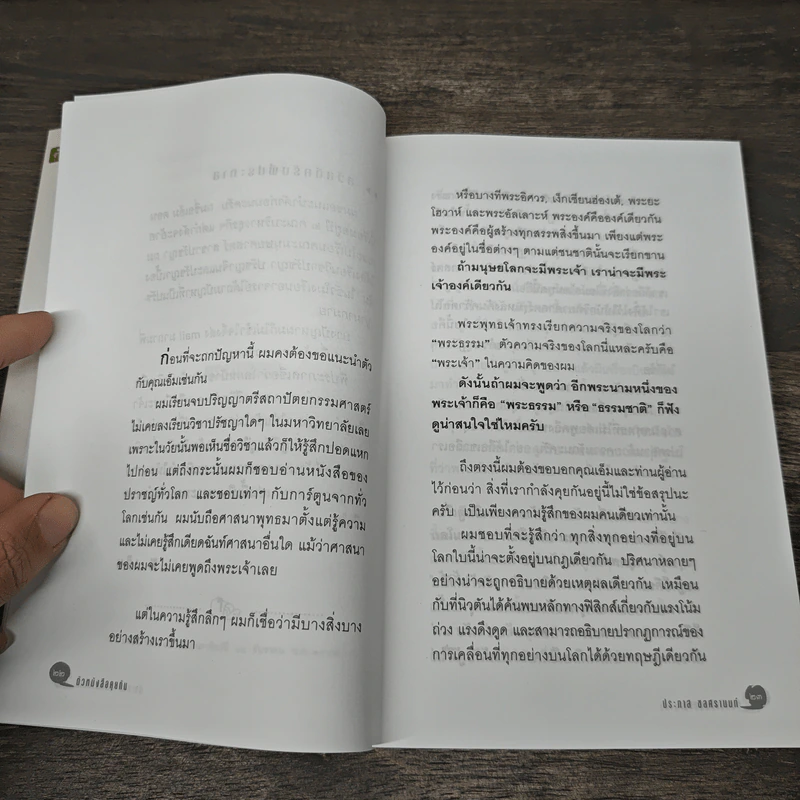 ก่อนที่จะถกปัญหานี้ ผมคงต้องขอแนะนำตัว
กับคุณเอ็มเช่นกัน
ผมเรียนจบปริญญาตรีสถาปัตยกรรมศาสตร์
ไม่เคยลงเรียนวิชาปรัชญาใดๆ ในมหาวิทยาลัยเลย
เพราะในวัยนั้นพอเห็นชื่อวิชาแล้วก็ให้รู้สึกปอดแหก
ไปก่อน แต่ถึงกระนั้นผมก็ชอบอ่านหนังสือของ
ปราชญ์ทั่วโลก และชอบเท่าๆ กับการ์ตูนจากทั่ว
โลกเช่นกัน ผมนับถือศาสนาพุทธมาตั้งแต่รู้ความ
และไม่เคยรู้สึกเดียดฉันท์ศาสนาอื่นใด แม้ว่าศาสนา
ของผมจะไม่เคยพูดถึงพระเจ้าเลย
แต่ในความรู้สึกลึกๆ ผมก็เชื่อว่ามีบางสิ่งบาง
อย่างสร้างเราขึ้นมา
๒๒
หรือบางทีพระอิศวร, เง็กเซียนฮ่องเต้, พระยะ
โฮวาห์ และพระอัลเลาะห์ พระองค์คือองค์เดียวกัน
พระองค์คือผู้สร้างทุกสรรพสิ่งขึ้นมา เพียงแต่พระ
องค์อยู่ในชื่อต่างๆ ตามแต่ชนชาตินั้นจะเรียกขาน
ถ้ามนุษยโลกจะมีพระเจ้า เราน่าจะมีพระ
เจ้าองค์เดียวกัน
พระพุทธเจ้าทรงเรียกความจริงของโลกว่า
“พระธรรม” ตัวความจริงของโลกนี่แหละครับคือ
“พระเจ้า” ในความคิดของผม
ดังนั้นถ้าผมจะพูดว่า อีกพระนามหนึ่งของ
พระเจ้าก็คือ “พระธรรม” หรือ “ธรรมชาติ” ก็ฟัง
ดูน่าสนใจใช่ไหมครับ
ถึงตรงนี้ผมต้องขอบอกคุณเอ็มและท่านผู้อ่าน
ไว้ก่อนว่า สิ่งที่เรากำลังคุยกันอยู่นี้ไม่ใช่ข้อสรุปนะ
ครับ เป็นเพียงความรู้สึกของผมคนเดียวเท่านั้น
ผมชอบที่จะรู้สึกว่า ทุกสิ่งทุกอย่างที่อยู่บน
โลกใบนี้น่าจะตั้งอยู่บนกฎเดียวกัน ปริศนาหลายๆ
อย่างน่าจะถูกอธิบายด้วยเหตุผลเดียวกัน เหมือน
กับที่นิวตันได้ค้นพบหลักทางฟิสิกส์เกี่ยวกับแรงโน้ม
ถ่วง แรงดึงดูด และสามารถอธิบายปรากฏการณ์ของ
การเคลื่อนที่ทุกอย่างบนโลกได้ด้วยทฤษฎีเดียวกัน
ประภาส ชลศรานนท์ ๒๓